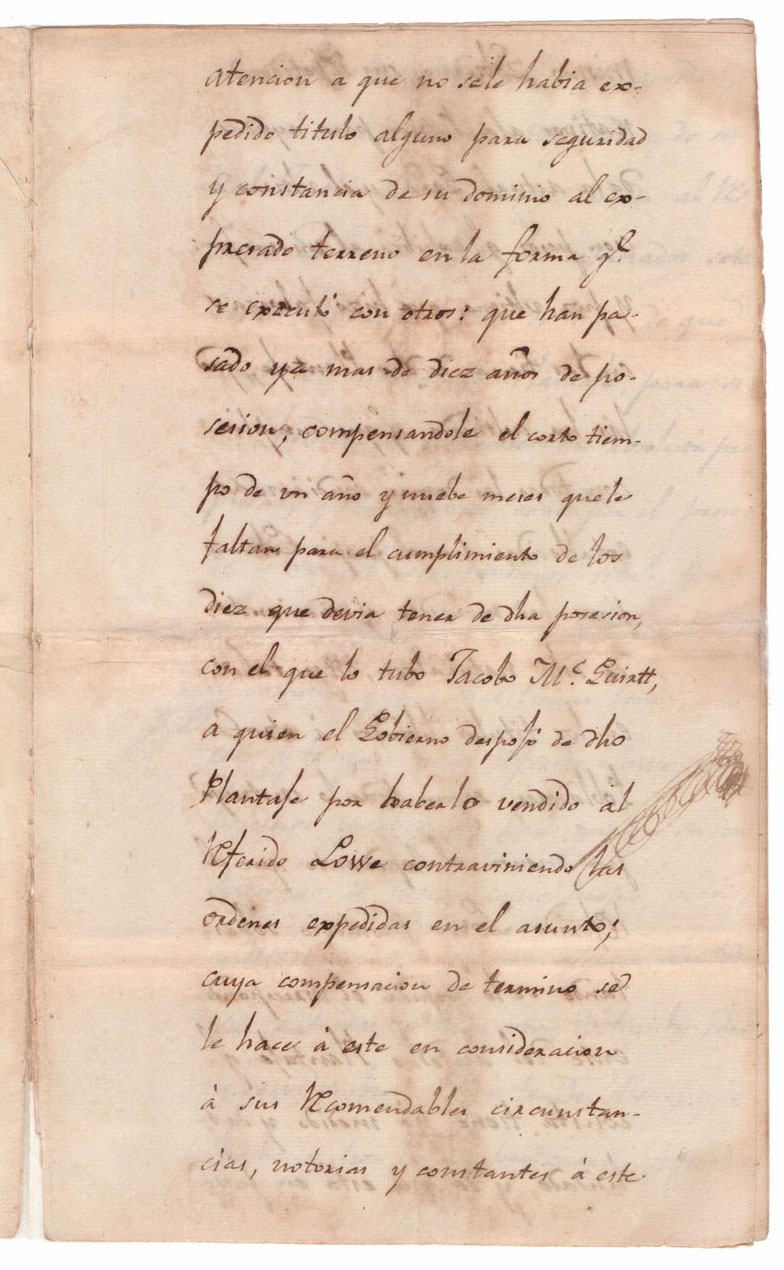 atencion a que no sele habia ex-
pedido titulo alguno para seguridad
y constancia de su dominio al ex-
presado terreno en la forma qe.
se executó con otros: que han pa-
sado ya mas de diez años de po-
sesion, compensandole el corto tiem-
po de un año y nuebe meses que le
faltan para el cumplimiento de los
diez que devia tener de dha posesion,
con el que lo tubo Jacobo Mc.
a quien el Gobierno despojó de dho
Plantage por haberlo vendido al
Referido Lowe contraviniendo las
ordenes expedidas en el asunto;
cuya compensacion de termino se
le hace à este en consideracion
à sus Recomendables circunstan-
cias, notorias y constantes à este